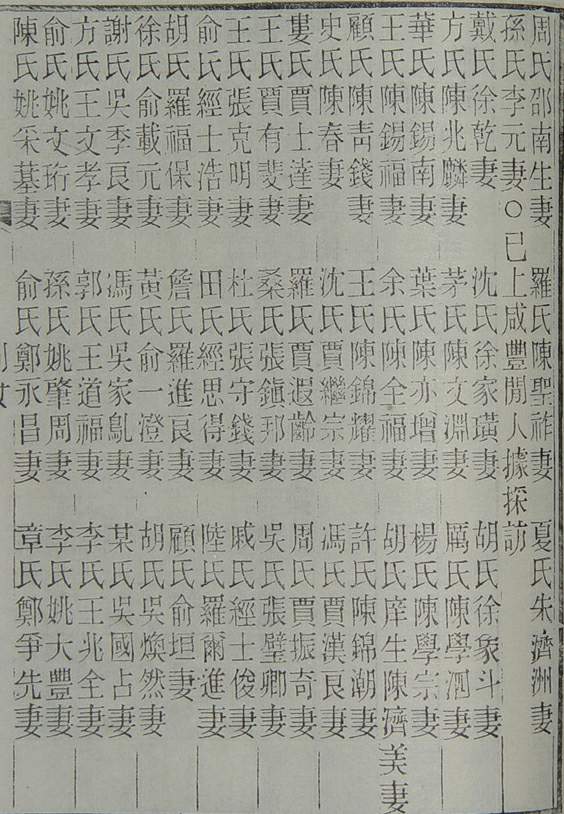 周氏邵南生妻 羅氏陳聖祚妻 夏氏朱濟洲妻
孫氏李元妻○已上咸豐閒人據採訪
戴氏徐乾妻 沈氏徐家璜妻 胡氏徐象斗妻
方氏陳兆麟妻 茅氏陳文淵妻 厲氏陳學泗妻
華氏陳錫南妻 葉氏陳亦增妻 楊氏陳學宗妻
王氏陳錫福妻 余氏陳全福妻 胡氏庠生陳濟美妻
顧氏陳靑錢妻 王氏陳錦耀妻 許氏陳錦潮妻
史氏陳春妻 沈氏賈繼宗妻 馮氏賈漢良妻
婁氏賈上達妻 羅氏賈遐齡妻 周氏賈振奇妻
王氏賈有斐妻 桑氏張鎭邦妻 吳氏張璧卿妻
王氏張克明妻 杜氏張守錢妻 戚氏經士俊妻
俞氏經士浩妻 田氏經思得妻 陸氏羅爾進妻
胡氏羅福保妻 詹氏羅進良妻 顧氏俞垣妻
徐氏俞載元妻 黃氏俞一澄妻 胡氏吳煥然妻
謝氏吳季良妻 馮氏吳家妻 某氏吳國占妻
方氏王文孝妻 郭氏王道福妻 李氏王兆全妻
俞氏姚文珩妻 孫氏姚肇周妻 李氏姚大豐妻
陳氏姚采妻 俞氏鄭永昌妻 章氏鄭爭先妻